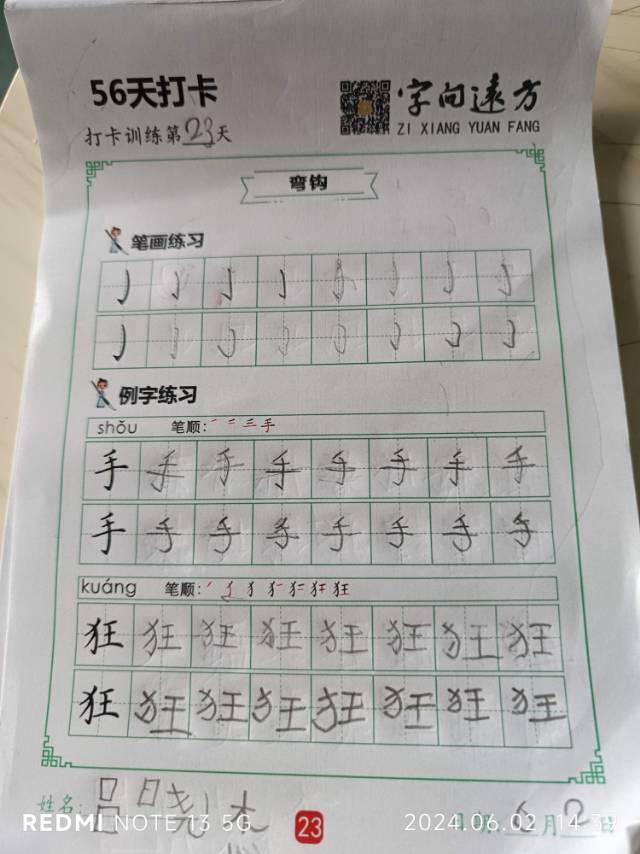 56天打卡
字向远方
打卡训练第23天
ZI XIANG YUAN FANG
弯钩
笔画练习
例字练习
shǒu 笔顺: 一 二 三 手
手 手 手 手 手 手 手 手
手 手 手 手 手 手 手 手
kuáng 笔顺: 狂
狂 狂 狂 狂 狂 狂 狂 狂
狂 狂 狂 狂 狂 狂 狂 狂
姓名: 吕晓杰
6月2日
23
REDMI NOTE 13 5G
2024.06.02 14:39